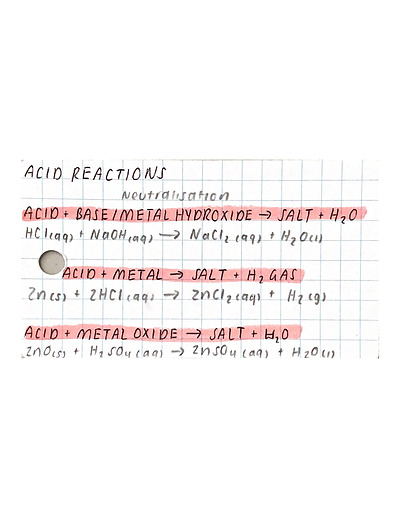 ACID REACTIONS
Neutralisation
ACID + BASE/METAL HYDROXIDE → SALT + H₂O
HCl(aq) + NaOH(aq) → NaCl₂(aq) + H₂O(l)
ACID + METAL → SALT + H₂ GAS
Zn(s) + 2HCl(aq) → ZnCl₂(aq) + H₂(g)
ACID + METAL OXIDE → SALT + H₂O
ZnO(s) + H₂SO₄(aq) → ZnSO₄(aq) + H₂O(l)